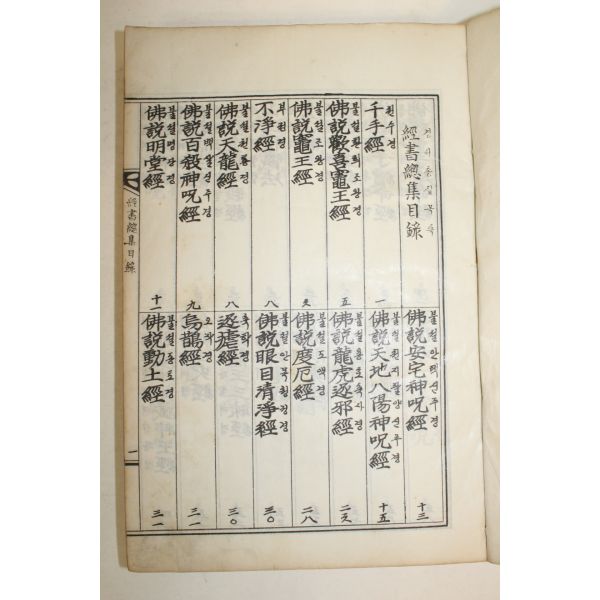 經書總集目錄
千手經 쳔수경 一
佛說歡喜竈王經 불셜환희조왕경 五
佛說竈王經 불셜조왕경 六
不淨經 부졍경 八
佛說天龍經 불셜쳔룡경 八
佛說百殺神呪經 불셜백살신주경 九
佛說明堂經 불셜명당경 十一
佛說安宅神呪經 불셜안택신주경 十三
佛說天地八陽神呪經 불셜쳔지팔양신주경 十五
佛說龍虎逐邪經 불셜룡호축사경 二六
佛說度厄經 불셜도액경 二八
佛說眼目清淨經 불셜안목쳥졍경 三〇
逐瘧經 축학경 三〇
烏鵲經 오작경 三一
佛說動土經 불셜동토경 三一
經書總集目錄
一